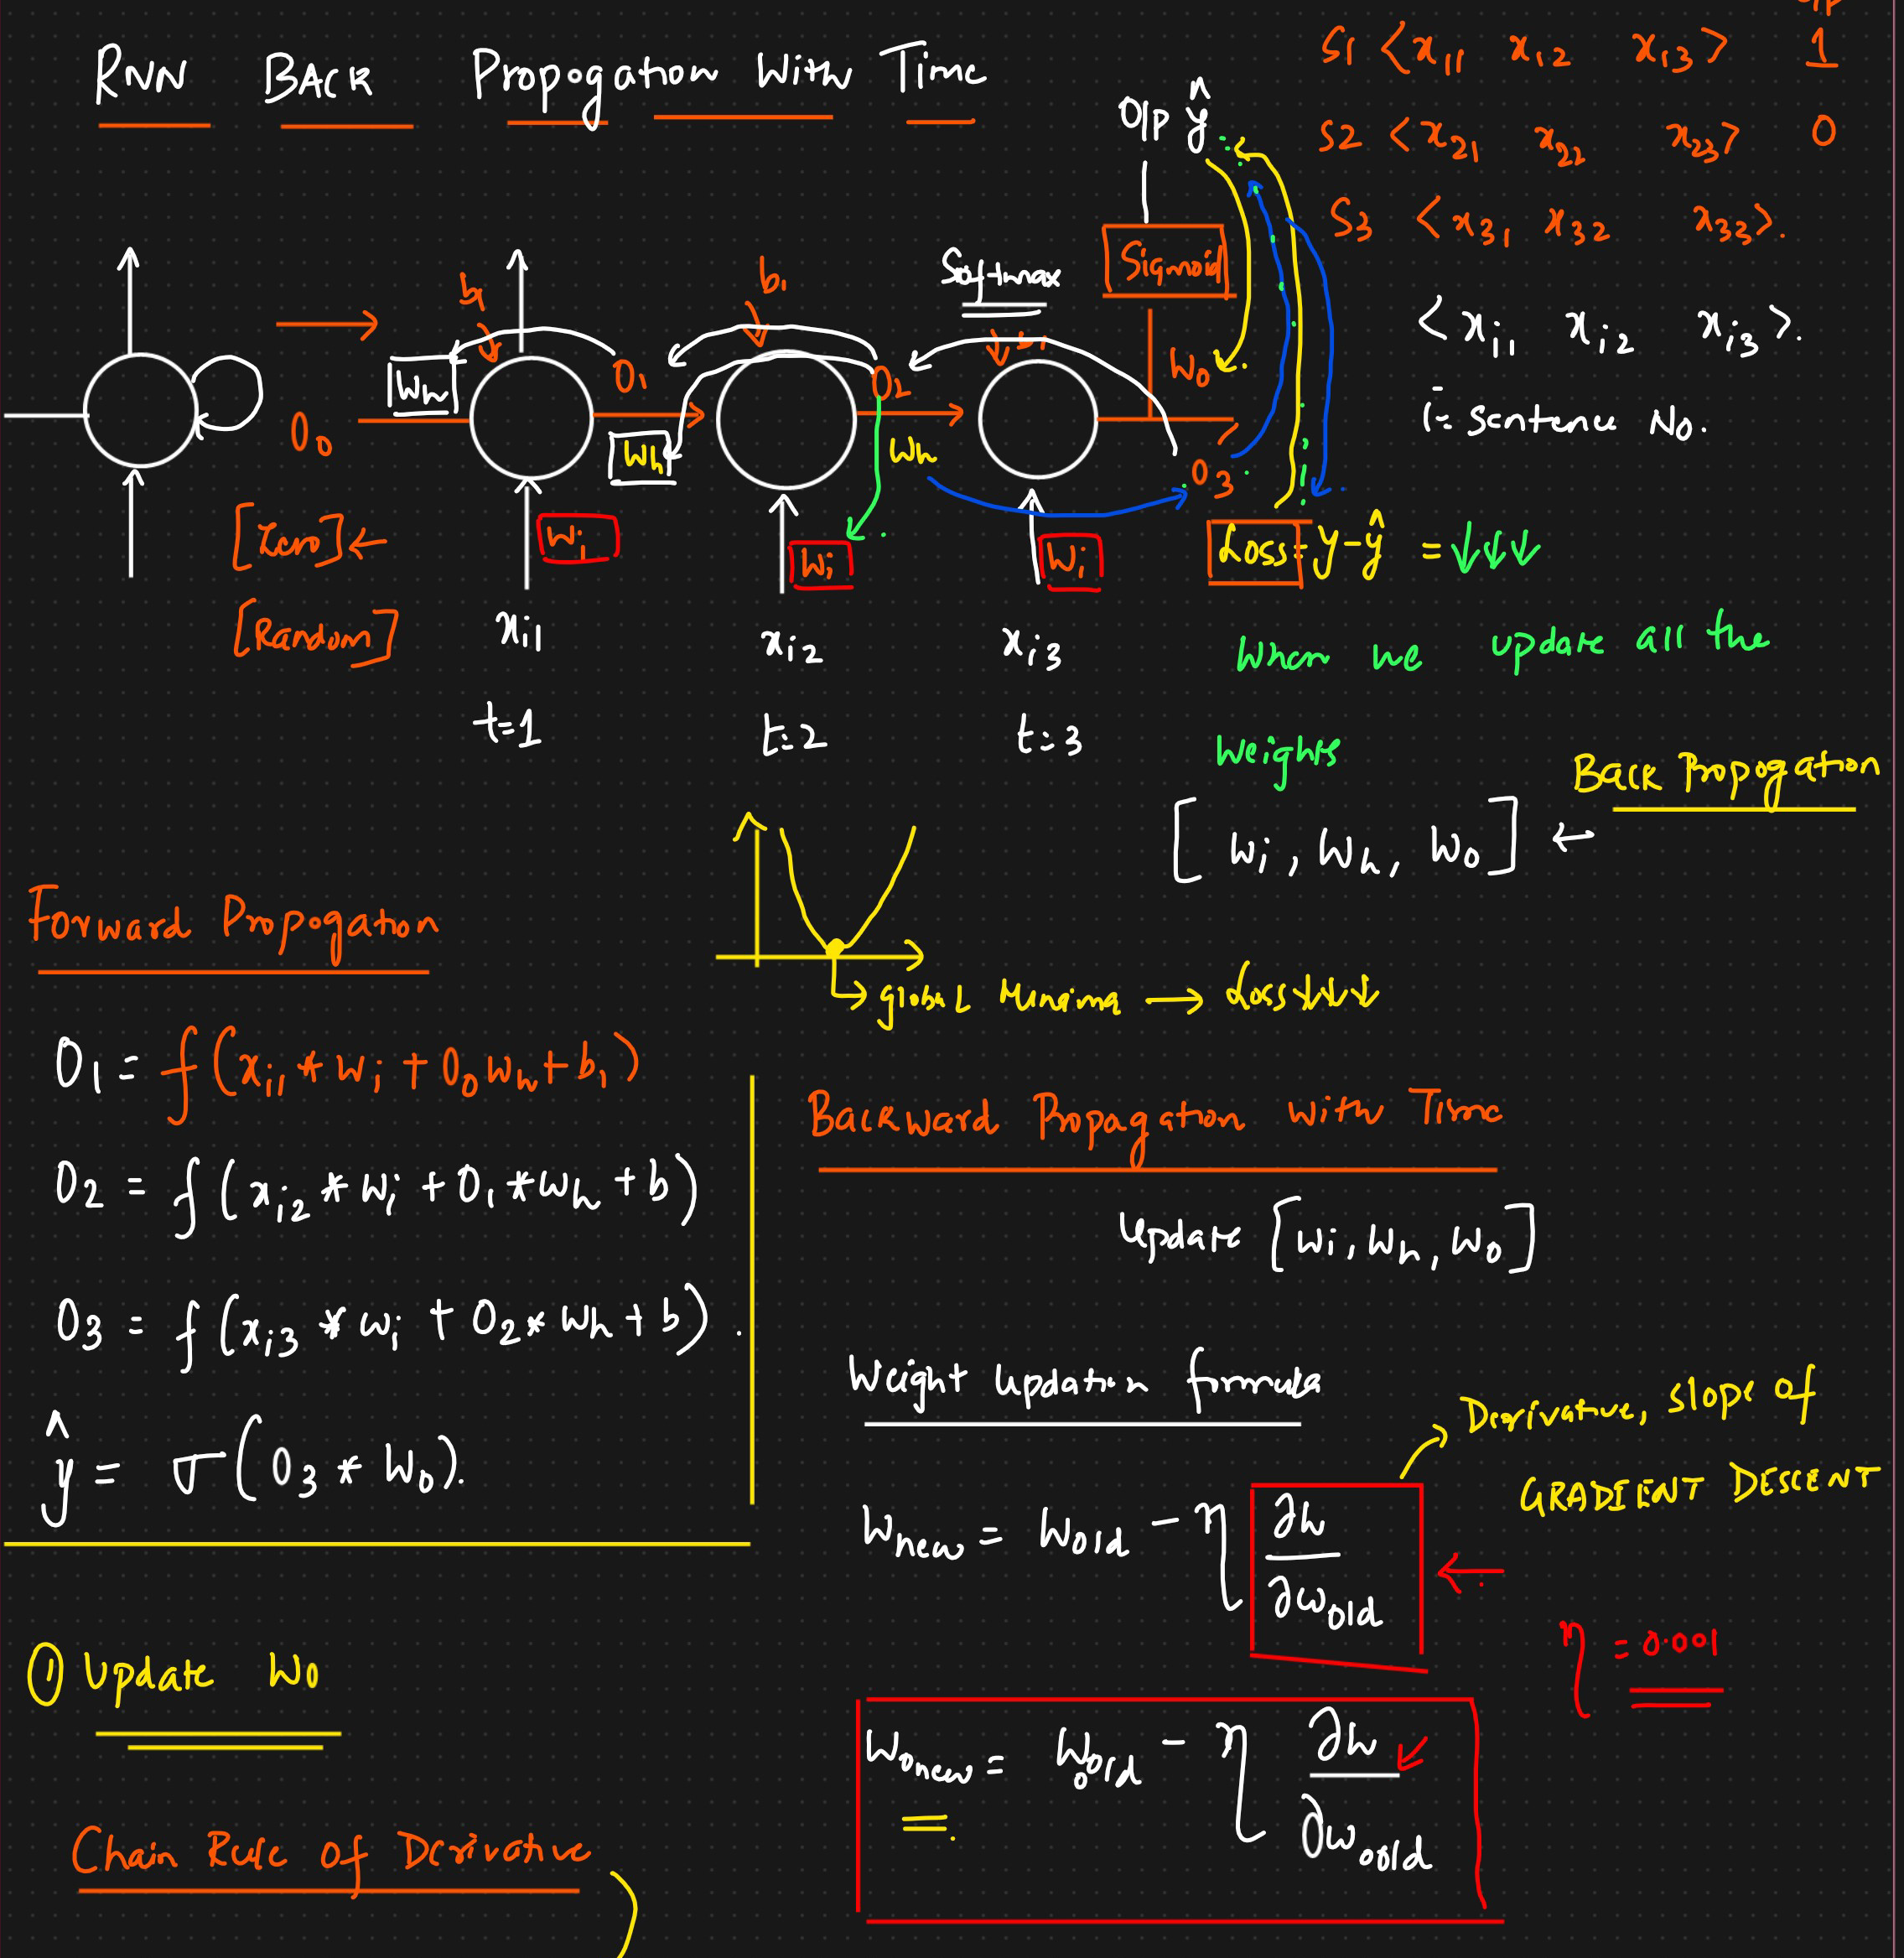 O/p
RNN BACK Propogation With Time
S1 <x11 x12 x13> 1
S2 <x21 x22 x23> 0
S3 <x31 x32 x33>.
<xi1 xi2 xi3>.
i= sentence No.
O/p ŷ
Sigmoid
Softmax
b1
b1
b1
Wh
O1
O2
W0
O0
Wh
Wh
O3
[Zero] ←
[Random]
Wi
Wi
Wi
Loss = y-ŷ = ↓↓↓
xi1
xi2
xi3
t=1
t=2
t=3
When we update all the
weights
Back Propogation
[wi, Wh, W0] ←
global Minima → Loss ↓↓↓
Forward Propogation
O1 = f(xi1 * wi + O0 wh + b1)
O2 = f(xi2 * wi + O1 * wh + b)
O3 = f(xi3 * wi + O2 * wh + b).
ŷ = σ(O3 * W0).
Backward Propagation with Time
Update [wi, wh, w0]
Weight Updation formula
Derivative, slope of
GRADIENT DESCENT
Wnew = Wold - η ∂h/∂wold
η = 0.001
① Update W0
W0new = W0old - η ∂h/∂w0old
Chain Rule of Derivative